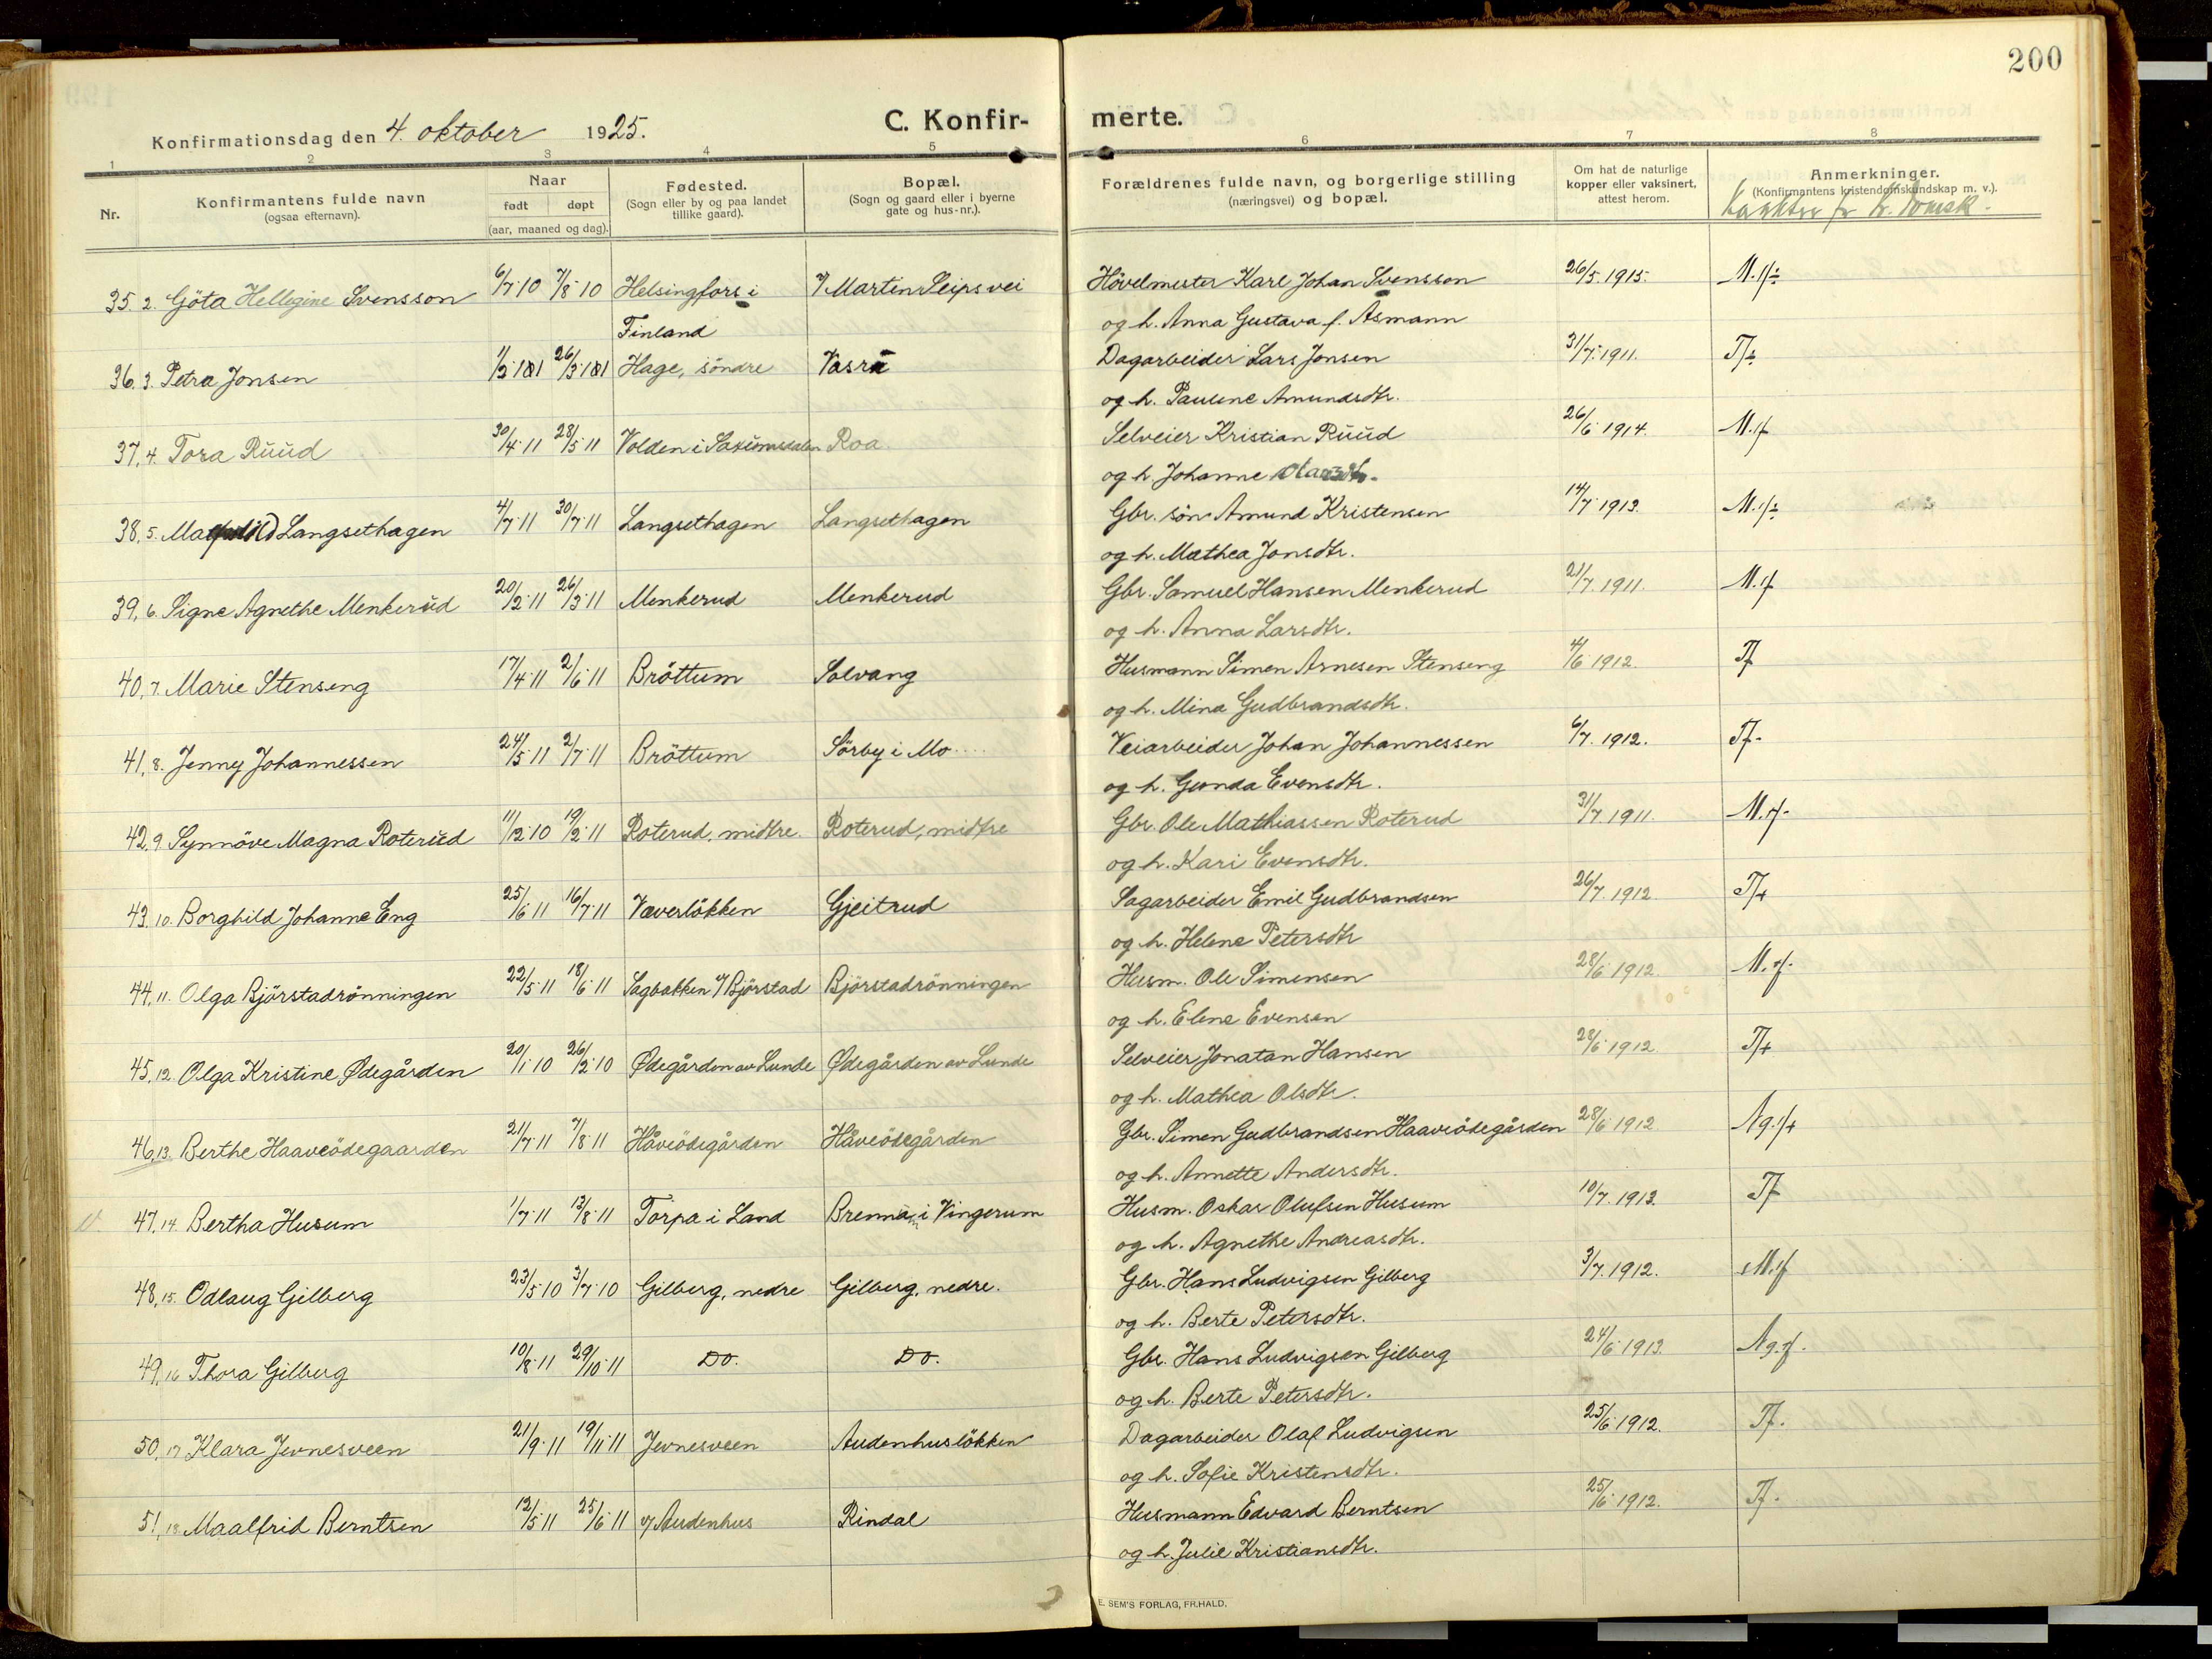 200
Konfirmationsdag den 4. oktober 1925.
C. Konfir-
merte.
1 2 3 4 5 6 7 8
Nr.
Konfirmantens fulde navn
(ogsaa efternavn).
Naar
født døpt
(aar, maaned og dag).
Fødested.
(Sogn eller by og paa landet
tillike gaard).
Bopæl.
(Sogn og gaard eller i byerne
gate og hus-nr.).
Forældrenes fulde navn, og borgerlige stilling
(næringsvei) og bopæl.
Om hat de naturlige
kopper eller vaksinert,
attest herom.
Anmerkninger.
(Konfirmantens kristendomskundskap m. v.).
35. 2. Göta Hellegine Svensson 6/7·10 7/8·10 Helsingfors i v/ Martin Leips vei Hövelmester Karl Johan Svensson 26/5.1915. M.
Finland og h. Anna Gustava f. Åsmann
36. 3. Petra Jonsen Hage, söndre Vasrå Dagarbeider Lars Jonsen 31/7.1911. Tf
og h. Pauline Amundsdtr.
37. 4. Tora Ruud 30/4·11 28/5·11 Volden i Saxumsdalen Roa. Selveier Kristian Ruud 26/6.1914. M.
og h. Johanne
38. 5. Langsethagen 4/7·11 30/7·11 Langsethagen Langsethagen Gbr. sön Amund Kristensen 14/7 1913. M.
og h. Mathea Jonsdtr.
39, 6. Signe Agnethe Menkerud 20/2·11 26/3·11 Menkerud Menkerud Gbr. Samuel Hansen Menkerud 21/7.1911. M.
og h. Anna Larsdtr.
40, 7. Marie Stenseng 17/4·11 2/6·11 Bröttum Solvang Husmann Simen Arnesen Stenseng 4/6 1912. Tf
og h. Mina Gudbrandsdtr.
41, 8. Jenny Johannessen 24/5·11 2/7·11 Bröttum Sörby i Mo Veiarbeider Johan Johannessen 6/7.1912. Tf.
og h. Gunda Evensdtr.
42, 9. Synnöve Magna Roterud 11/12·10 19/2·11 Roterud, midtre. Roterud, midtre Gbr. Ole Mathiassen Roterud 31/7.1911. M.
og h. Kari Evensdtr.
43. 10. Borghild Johanne Eng 25/6·11 16/7·11 Væverlökken Gjeitrud Sagarbeider Emil Gudbrandsen 26/7.1912. Tf
og h. Helene Petersdtr
44, 11. Olga Björstadrönningen 22/5·11 18/6·11 Sagbakken v/ Björstad Björstadrönningen Husm. Ole Simensen 28/6 1912. M.
og h. Elene Evensen
45, 12. Olga Kristine Ødegården 20/1·10 26/2·10 Ødegården av Lunde Ødegården av Lunde Selveier Jonatan Hansen 28/6 1912. Tf
og h. Mathea Olsdtr.
46, 13. Berthe Haaveödegaarden 21/7·11 7/8·11 Håveödegården Håveödegården Gbr. Simen Gudbrandsen Haaveödegården 28/6 1912 Ng.
og h. Annette Andersdtr.
47, 14. Bertha Husum 1/7·11 13/8·11 Torpa i Land Brenna, i Vingerum Husm. Oskar Olufsen Husum 10/7.1913. Tf
og h. Agnethe Andreasdtr.
48, 15. Odlaug Gilberg 23/5·10 3/7·10 Gilberg, nedre Gilberg, nedre. Gbr. Hans Ludvigsen Gilberg 3/7.1912. M.
og h. Berte Petersdtr.
49, 16 Thora Gilberg 10/8·11 29/10·11 Do. Do. Gbr. Hans Ludvigsen Gilberg 24/6 1913. Ng.
og h. Berte Petersdtr.
50, 17 Klara Jevnesveen 21/9·11 19/11·11 Jevnesveen Audenhuslökken Dagarbeider Olaf Ludvigsen 25/6 1912. Tf.
og h. Sofie Kristensdtr.
51, 18. Maalfrid Berntsen 12/5·11 25/6·11 v/ Audenhus Rindal Husmann Edvard Berntsen 25/6 1912. Tf.
og h. Julie Kristiansdtr.
E. SEM'S FORLAG, FR.HALD.